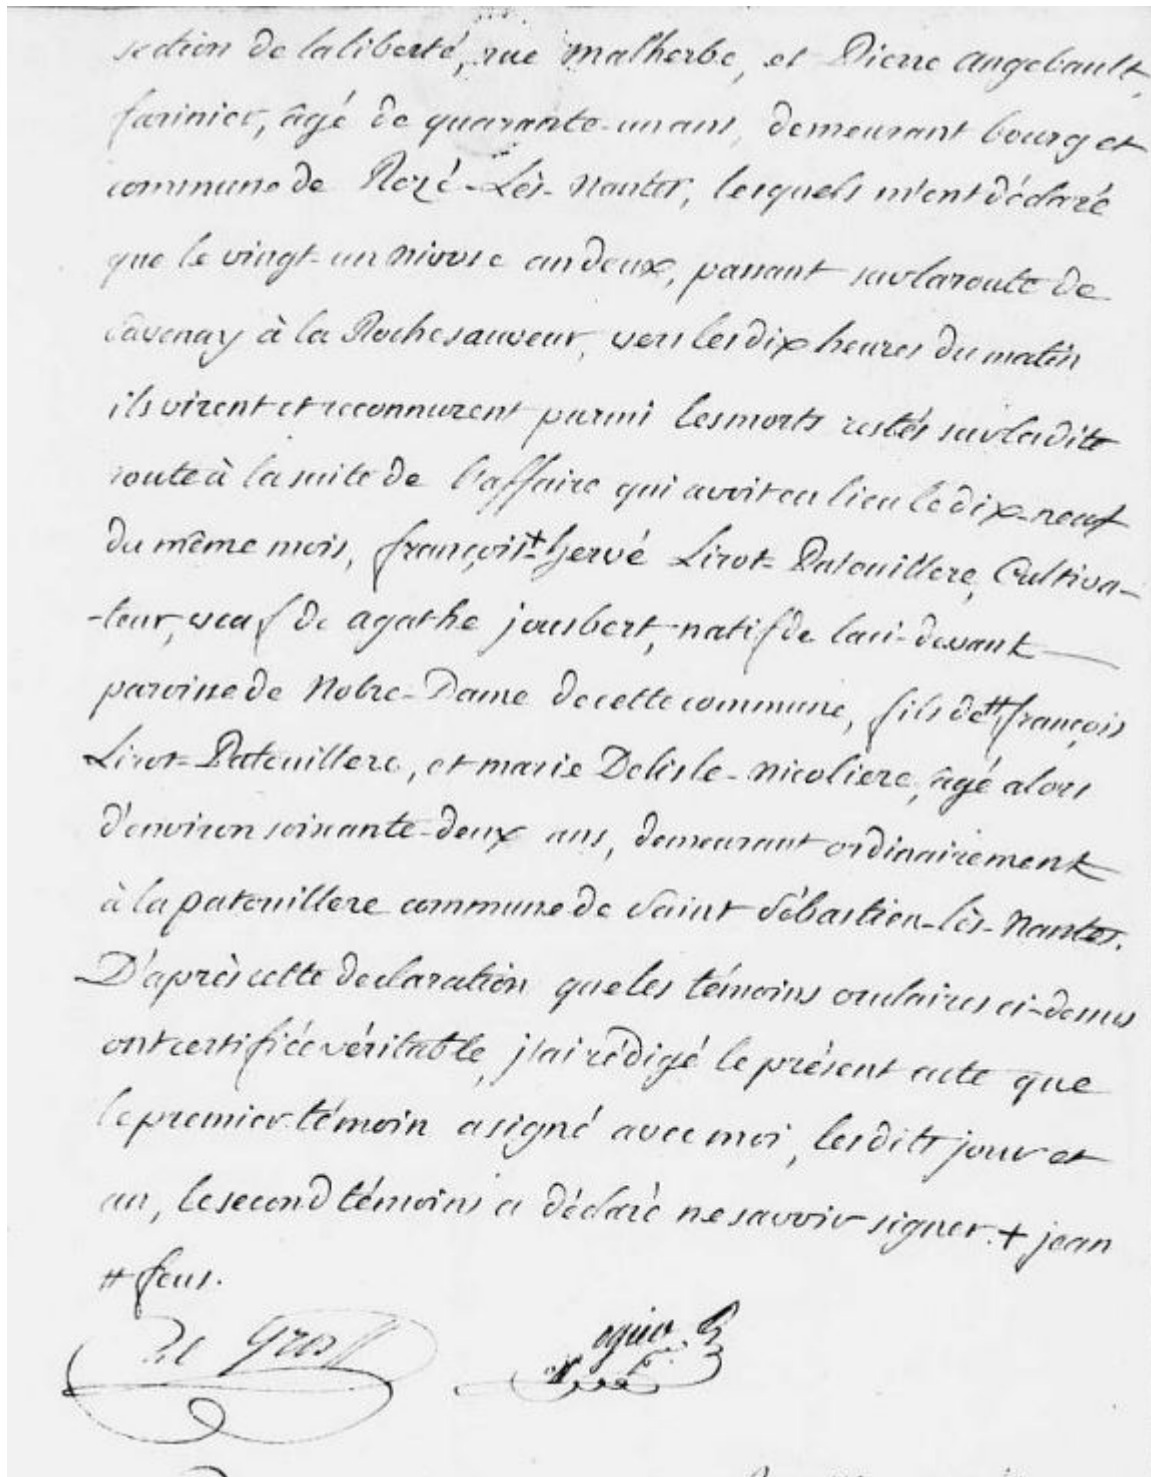 section de la liberté, rue malherbe, et Pierre angebault,
farinier, âgé de quarante-un ans, demeurant bourg et
commune de Rezé-Lès-Nantes, lesquels m'ont déclaré
que le vingt-un nivose an deux, passant sur la route de
Savenay à la Roche sauveur, vers les dix heures du matin
ils virent et reconnurent parmi les morts restés sur la dite
route à la suite de l'affaire qui avoit eu lieu le dix-neuf
du même mois, françois + hervé Lirot-Patouillere, Cultiva-
-teur, veuf de agathe jousbert, natif de la ci-devant
paroisse de Notre-Dame de cette commune, fils de # françois
Lirot-Patouillere, et marie Delisle-nicoliere, âgé alors
d'environ soixante-deux ans, demeurant ordinairement
à la patouillere commune de Saint Sébastien-lès-Nantes.
D'après cette declaration que les témoins oculaires ci-dessus
ont certifiée véritable, j'ai rédigé le présent acte que
le premier témoin a signé avec moi, les dits jour et
an, le second témoins a déclaré ne savoir signer. + jean
# feus.